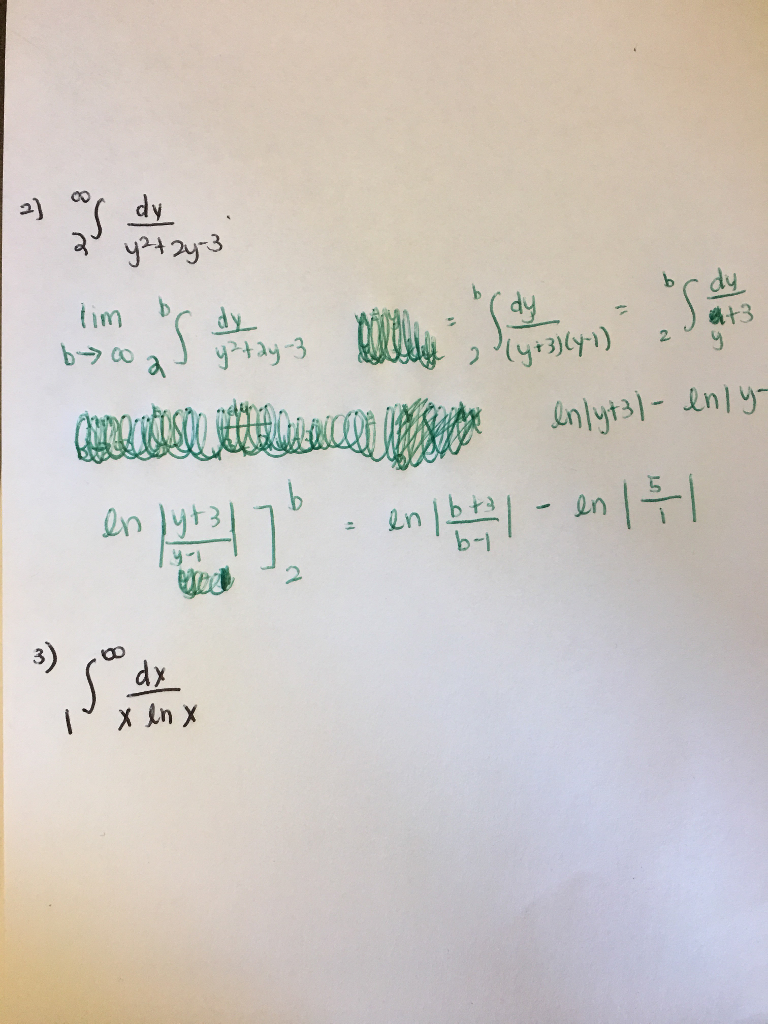 2) ∞∫2 dy/(y²+2y-3)
lim b→∞ b∫2 dy/(y²+2y-3) = b∫2 dy/((y+3)(y-1)) = b∫2 dy/(y+3)
ln|y+3| - ln|y-
ln |(y+3)/(y-1)| ]b2 = ln |(b+3)/(b-1)| - ln |5/1|
3) 1∫∞ dx/(x ln x)